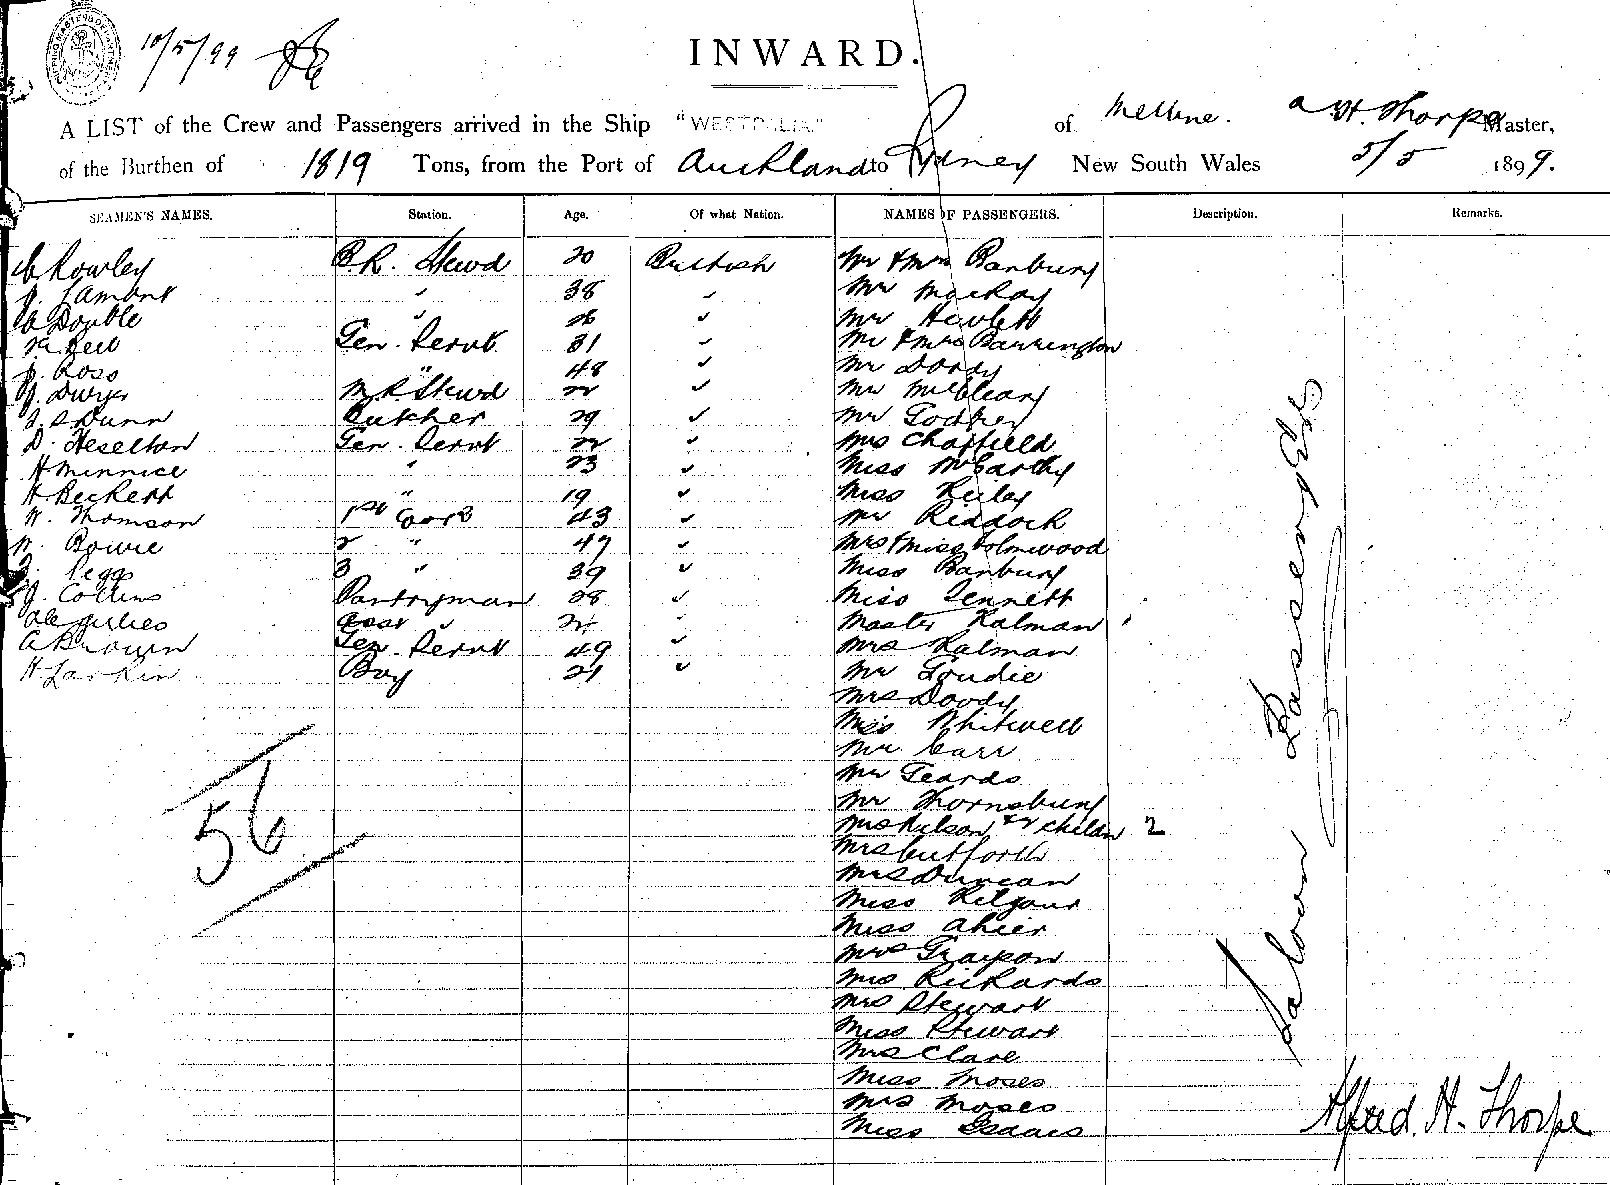 10/5/99
INWARD.
A LIST of the Crew and Passengers arrived in the Ship "WESTRALIA" of Melbne. A. H. Thorpe Master,
of the Burthen of 1819 Tons, from the Port of Auckland to Sydney New South Wales 5/5 1899.
SEAMEN'S NAMES. Station. Age. Of what Nation. NAMES OF PASSENGERS. Description. Remarks.
C Rowley B.R. Stewd 20 British Mr & Mrs Banbury
J. Lamont " 38 " Mr MacKay
A Double " 26 " Mr Hewlett
Bell Gen. Servt 31 " Mr & Mrs Barrington
J. Ross " 48 " Mr Doody
J. Dwyer M R Stewd 22 " Mr McCleary
Dunn Butcher 29 " Mr Godfrey
D. Heselton Gen. Servt 22 " Mrs Chatfield
H Minnice " 23 " Miss McCarthy
H Beckett " 19 " Miss Reiley
W. Thomson 1st Cook 43 " Mr Riddock
W. Bowie 2 " 47 " Mrs & Miss Holmwood
Pegg 3 " 39 " Miss Banbury
J. Collins Pantryman 28 " Miss Sennett
Gillies Asst " " Master Kalman
A Brown Gen. Servt 49 " Mrs Kalman
H Larkin Boy 21 " Mr Goudie
Mrs Doody
Miss Whitwell
Mr Carr
Mr Geards
Mr Thornsbury
Mrs Nelson & 2 Childn 2
Mrs Cutforth
Mrs Duncan
Miss Kilgour
Miss Ahier
Mrs Grayson
Mrs Richards
Mrs Stewart
Miss Stewart
Mrs Clare
Miss Moses
Mrs Moses
Miss Isaacs
56
Saloon Passengers
Alfred. H. Thorpe